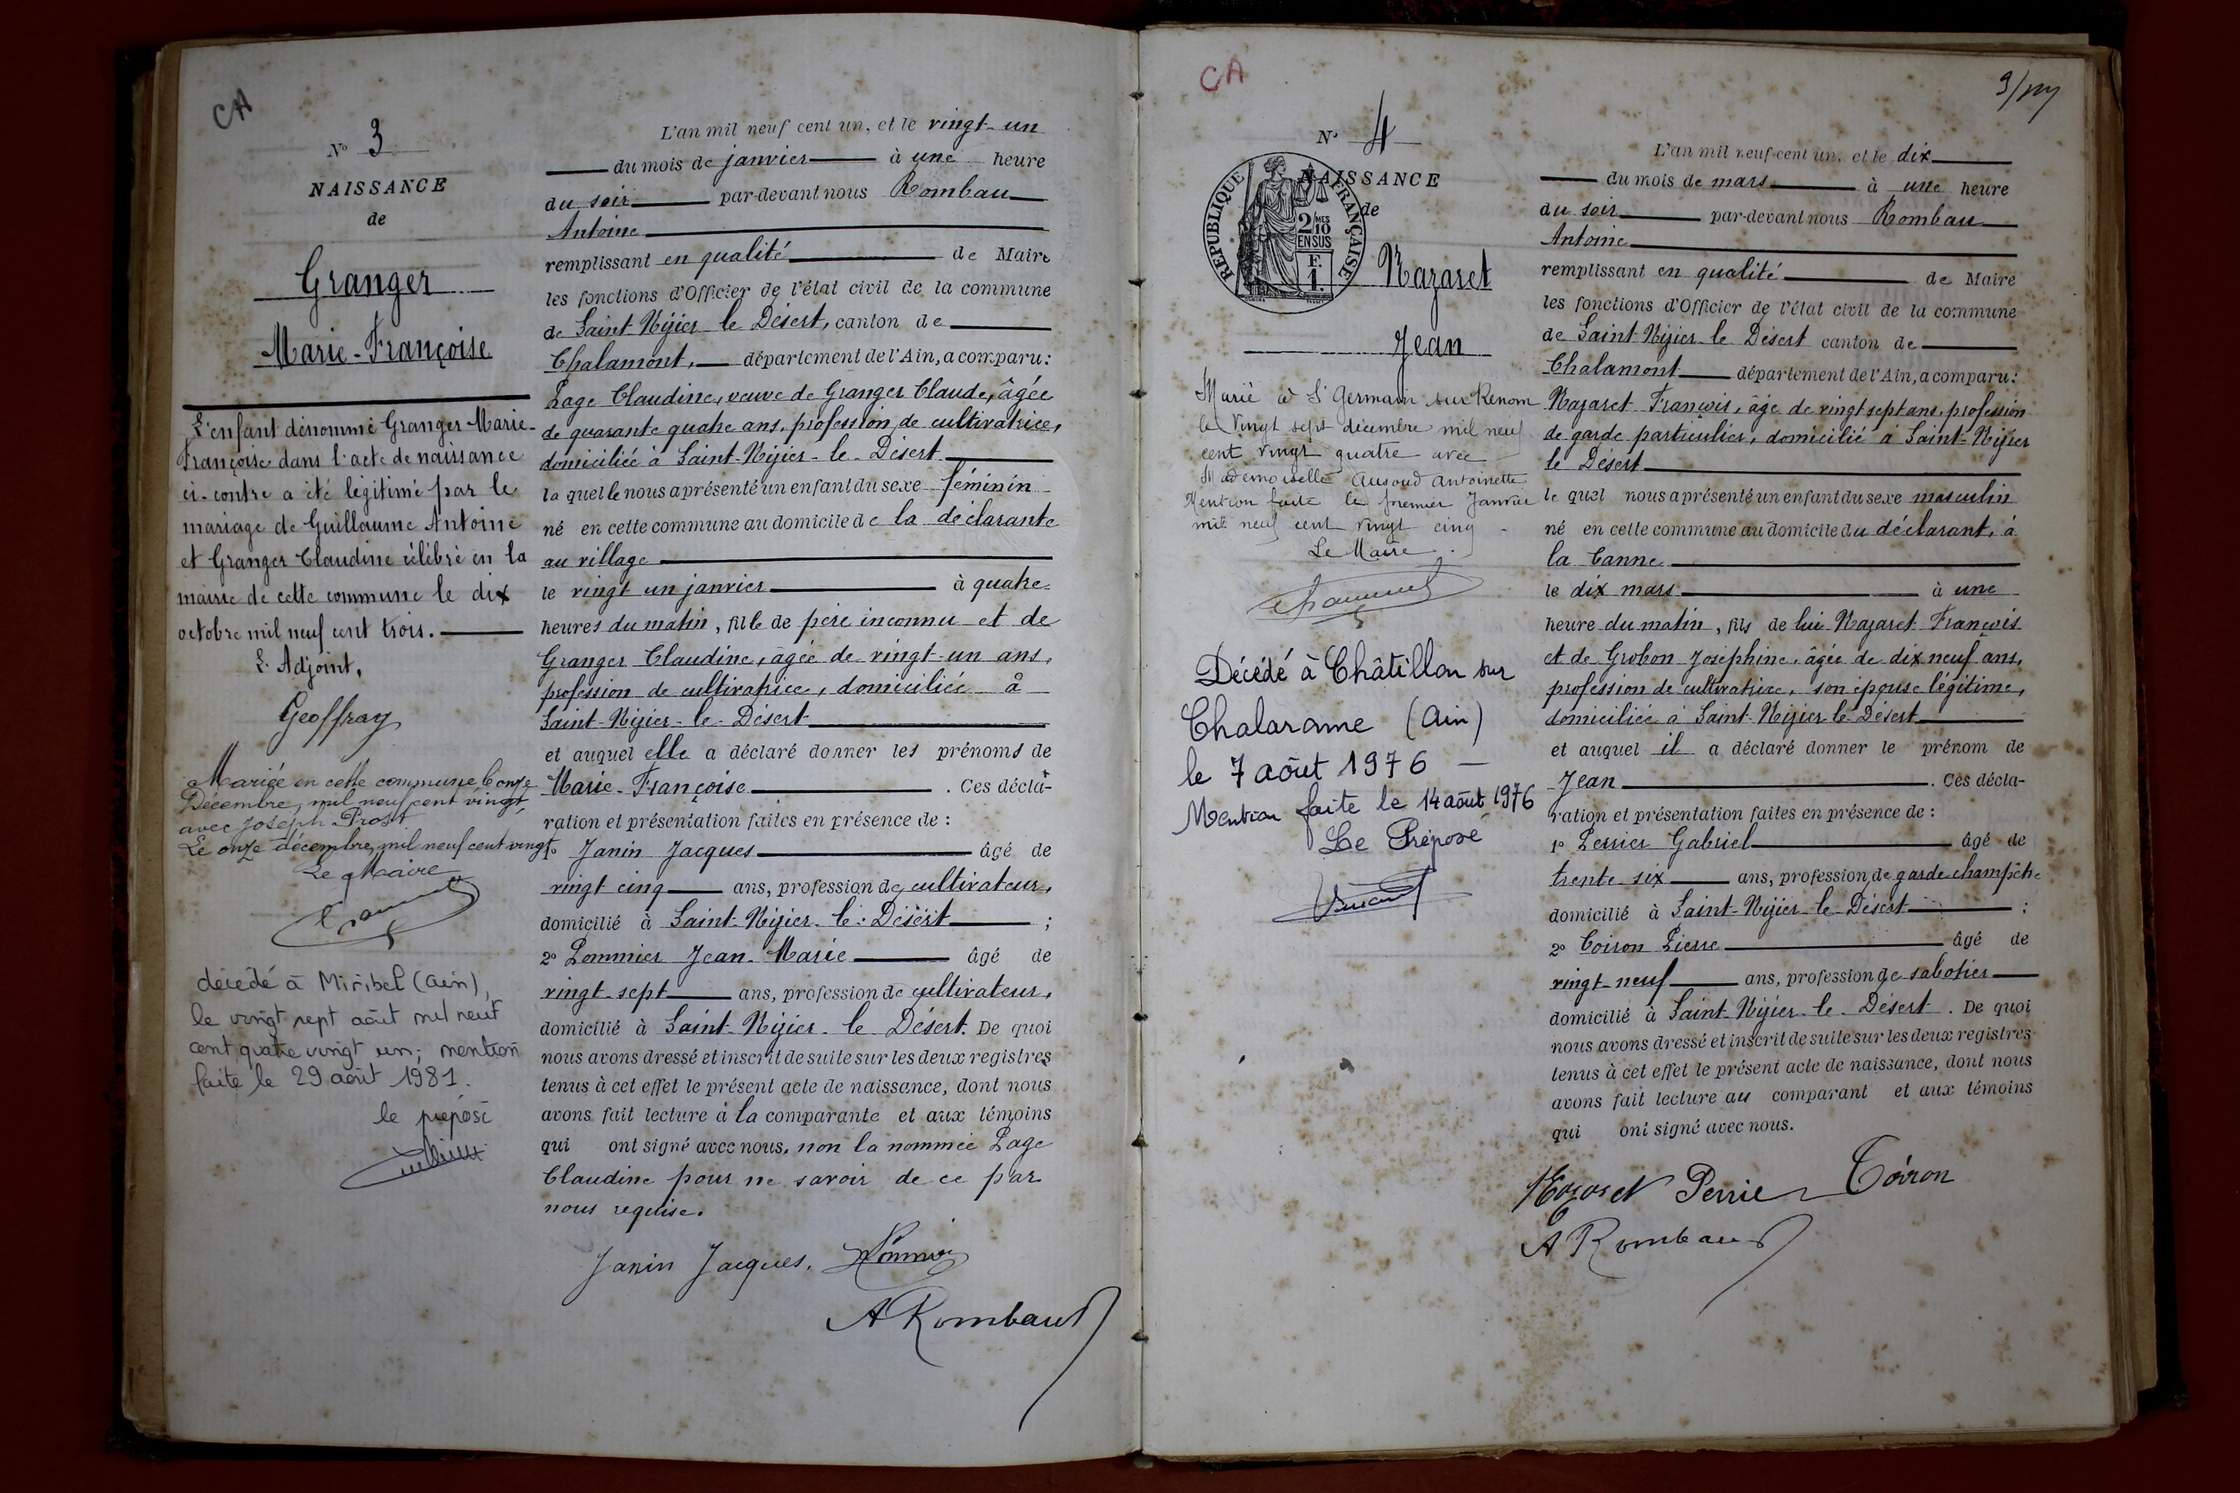 CA
N° 3
NAISSANCE
de
Granger
Marie-Françoise
L'enfant dénommé Granger Marie-
Françoise dans l'acte de naissance
ci-contre a été légitimé par le
mariage de Guillaume Antoine
et Granger Claudine célébré en la
mairie de cette commune le dix
octobre mil neuf cent trois.
L'Adjoint,
Geoffray
Mariée en cette commune le onze
Décembre, mil neuf cent vingt,
avec Joseph Prost
Le onze décembre, mil neuf cent vingt
Le Maire
décédé à Miribel (Ain),
le vingt sept août mil neuf
cent quatre vingt un; mention
faite le 29 août 1981.
le préposé
L'an mil neuf cent un, et le vingt-un
du mois de janvier à une heure
du soir par-devant nous Rombau
Antoine
remplissant en qualité de Maire
les fonctions d'Officier de l'état civil de la commune
de Saint-Nizier le Désert, canton de
Chalamont, département de l'Ain, a comparu:
Page Claudine, veuve de Granger Claude, âgée
de quarante quatre ans, profession de cultivatrice,
domiciliée à Saint-Nizier-le-Désert
laquelle nous a présenté un enfant du sexe féminin
né en cette commune au domicile de la déclarante
au village
le vingt un janvier à quatre
heures du matin, fille de père inconnu et de
Granger Claudine, âgée de vingt-un ans,
profession de cultivatrice, domiciliée à
Saint-Nizier-le-Désert
et auquel elle a déclaré donner les prénoms de
Marie-Françoise. Ces décla-
ration et présentation faites en présence de :
1° Janin Jacques âgé de
vingt cinq ans, profession de cultivateur,
domicilié à Saint-Nizier-le-Désert ;
2° Pommier Jean-Marie âgé de
vingt-sept ans, profession de cultivateur,
domicilié à Saint-Nizier-le Désert. De quoi
nous avons dressé et inscrit de suite sur les deux registres
tenus à cet effet le présent acte de naissance, dont nous
avons fait lecture à la comparante et aux témoins
qui ont signé avec nous, non la nommée Page
Claudine pour ne savoir de ce par
nous requise.
Janin Jacques.
A Rombaud
CA
N° 4
NAISSANCE
de
RÉPUBLIQUE FRANÇAISE
2/10 MES
EN SUS
F.
1.
Nazaret
Jean
Marié à St Germain sur Renom
le Vingt sept décembre mil neuf
cent vingt quatre avec
Mademoiselle Ausoud Antoinette
Mention faite le premier Janvier
mil neuf cent vingt cinq
Le Maire.
Décédé à Châtillon sur
Chalaronne (Ain)
le 7 août 1976 —
Mention faite le 14 août 1976
Le Préposé
L'an mil neuf cent un, et le dix
du mois de mars à une heure
du soir par-devant nous Rombau
Antoine
remplissant en qualité de Maire
les fonctions d'Officier de l'état civil de la commune
de Saint-Nizier-le Désert canton de
Chalamont département de l'Ain, a comparu:
Nazaret François, âgé de vingt sept ans, profession
de garde particulier, domicilié à Saint-Nizier
le Désert
lequel nous a présenté un enfant du sexe masculin
né en cette commune au domicile du déclarant, à
la Canne
le dix mars à une
heure du matin, fils de lui Nazaret François
et de Grobon Joséphine, âgée de dix neuf ans,
profession de cultivatrice, son épouse légitime,
domiciliée à Saint-Nizier-le-Désert
et auquel il a déclaré donner le prénom de
Jean. Ces décla-
ration et présentation faites en présence de :
1° Perrier Gabriel âgé de
trente six ans, profession de garde champêtre
domicilié à Saint-Nizier-le-Désert ;
2° Coiron Pierre âgé de
vingt-neuf ans, profession de sabotier
domicilié à Saint-Nizier-le-Désert. De quoi
nous avons dressé et inscrit de suite sur les deux registres
tenus à cet effet le présent acte de naissance, dont nous
avons fait lecture au comparant et aux témoins
qui ont signé avec nous.
Nazaret Perrier Coiron
A Rombaud